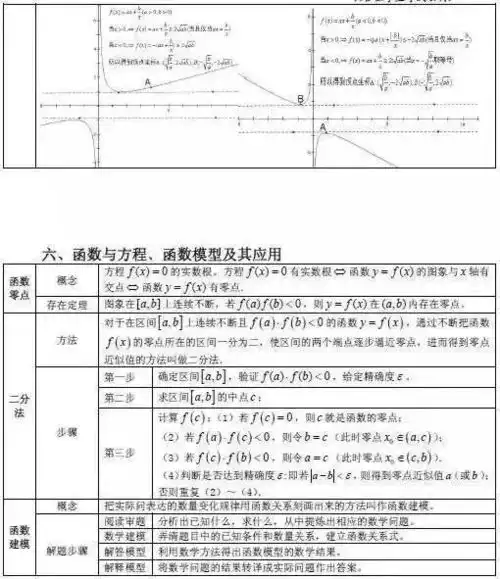 六、函数与方程、函数模型及其应用
函数零点
概念
方程 f(x)=0 的实数根。方程 f(x)=0 有实数根⇔函数 y=f(x) 的图象与 x 轴有
交点⇔函数 y=f(x) 有零点。
存在定理
图象在[a,b]上连续不断，若 f(a)f(b)<0，则 y=f(x) 在 (a,b) 内存在零点。
二分法
方法
对于在区间[a,b]上连续不断且 f(a)·f(b)<0 的函数 y=f(x)，通过不断把函数
f(x) 的零点所在的区间一分为二，使区间的两个端点逐步逼近零点，进而得到零点
近似值的方法叫做二分法.
步骤
第一步
确定区间[a,b]，验证 f(a)·f(b)<0，给定精确度ε。
第二步
求区间[a,b]的中点 c；
第三步
计算 f(c)：（1）若 f(c)=0，则 c 就是函数的零点；
（2）若 f(a)·f(c)<0，则令 b=c（此时零点 x₀∈(a,c)）；
（3）若 f(c)·f(b)<0，则令 a=c（此时零点 x₀∈(c,b)）.
(4)判断是否达到精确度ε：即若|a-b|<ε，则得到零点近似值 a（或 b）；
否则重复（2）～（4）.
函数建模
概念
把实际问表达的数量变化规律用函数关系刻画出来的方法叫作函数建模。
解题步骤
阅读审题
分析出已知什么，求什么，从中提炼出相应的数学问题。
数学建模
弄清题目中的已知条件和数量关系，建立函数关系式。
解答模型
利用数学方法得出函数模型的数学结果。
解释模型
将数学问题的结果转译成实际问题作出答案。
A
B
A